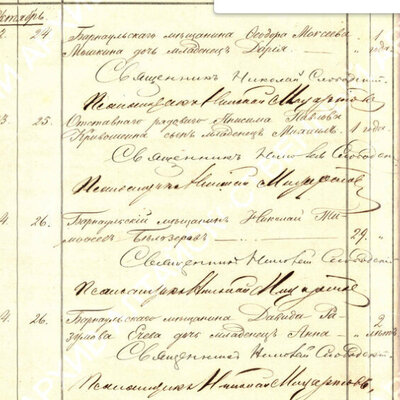 Октябрь
2. 24. Барнаульскаго мѣщанина Ѳеодора Моисеева 1
Мышкина дочь младенецъ Дарія. — „ года. „
Священникъ Николай Слободскій
Псаломщикъ Николай
3 25. Отставнаго рядоваго Анисима Павлова
Кривошеина сынъ младенецъ Михаилъ. 1 года.
Священникъ Николай Слободскій
Псаломщикъ Николай
4. 26. Барнаульскій мѣщанинъ Николай Ти-
моѳеевъ Бѣлозеровъ — 29. „
Священникъ Николай Слободскій
Псаломщикъ Николай
4 26. Барнаульскаго мѣщанина Давида Ра- 2
зумова дочь младенецъ Анна — „ лѣтъ.
Священникъ Николай Слободскій.
Псаломщикъ Николай